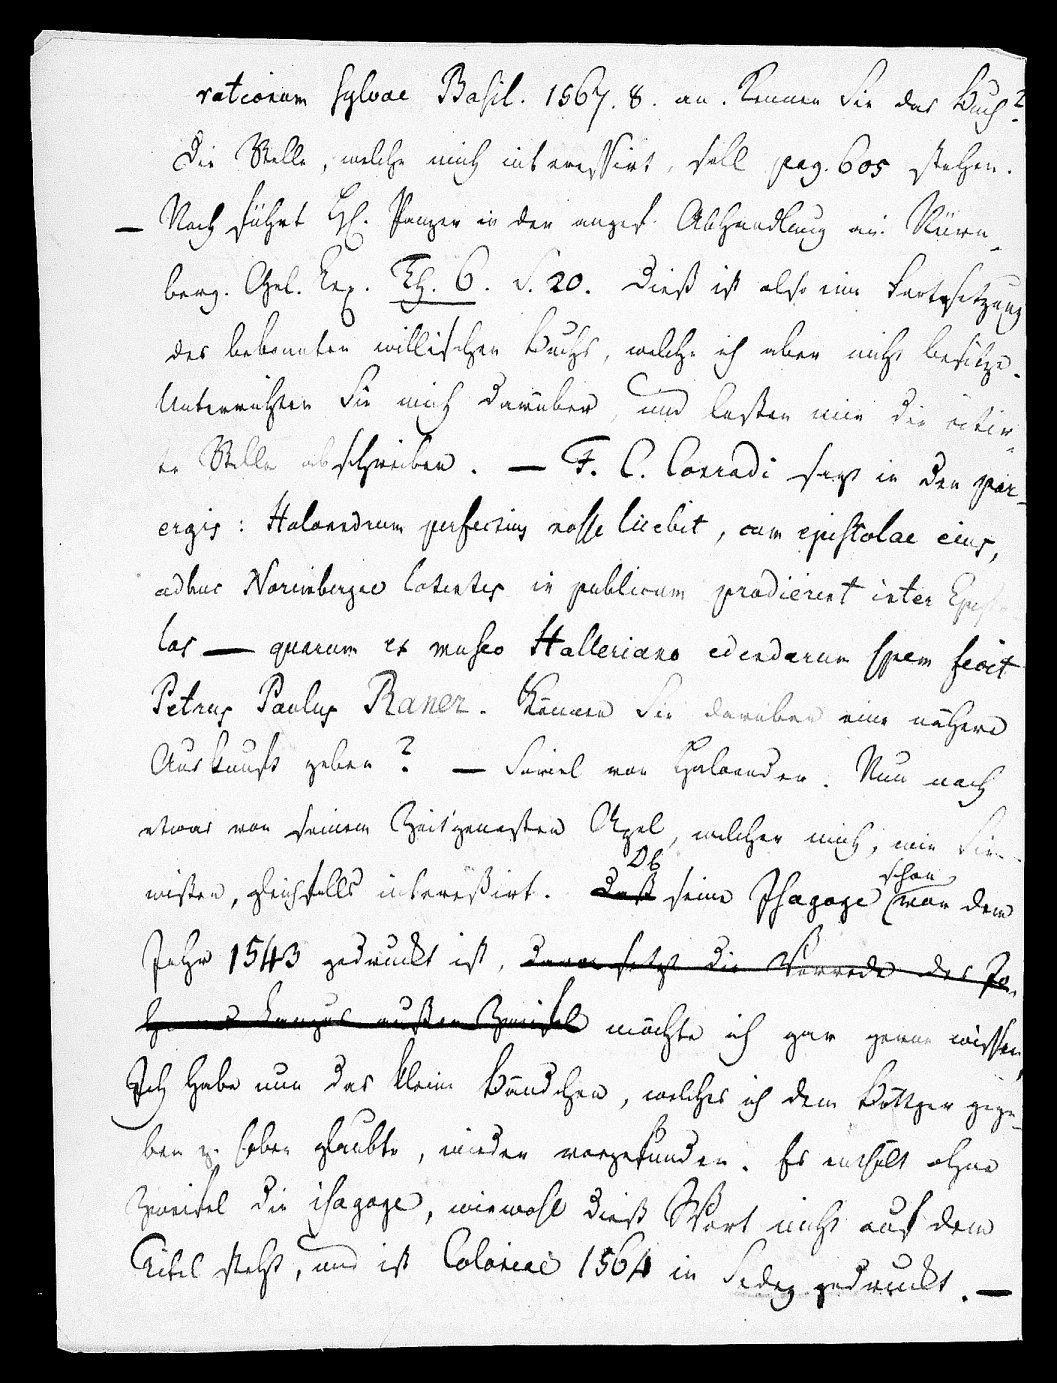 rationum sylvae Basil. 1567. 8. an. Kennen Sie das Buch?
Die Stelle, welche mich interessirt, soll pag. 605 stehen.
— Noch führt H. Panzer in der angef. Abhandlung an: Nürn-
berg. Gel. Lex. Th. 6. S. 20. Dieß ist also eine Fortsetzung
des bekannten willischen Buchs, welche ich aber nicht besitze.
Unterrichten Sie mich darüber, und lassen mir die citir-
te Stelle abschreiben. — F. C. Conradi sagt in den par-
ergis: Haloandrum perfectius nosse licebit, cum epistolae eius,
adhuc Norimbergae latentes in publicum prodierint inter Episto-
las — quarum ex museo Halleriano edendarum spem fecit
Petrus Paulus Raner. Können Sie darüber eine nähere
Auskunft geben? — Soviel von Haloander. Nun noch
etwas von seinem Zeitgenossen Apel, welcher mich, wie Sie
wissen, gleichfalls interessirt. Daß Ob seine Isagoge schon vor dem
Jahr 1543 gedruckt ist, dann setzt die Vorrede des Jo-
außer Zweifel möchte ich gar gerne wissen,
Ich habe nun das kleine Bändchen, welches ich dem Böttger gege-
ben z. haben glaubte, wieder vorgefunden. Es enthält ohne
Zweifel die isagoge, wiewohl dieß Wort nicht auf dem
Titel steht, und ist Coloniae 1564 in Sedez gedruckt. —